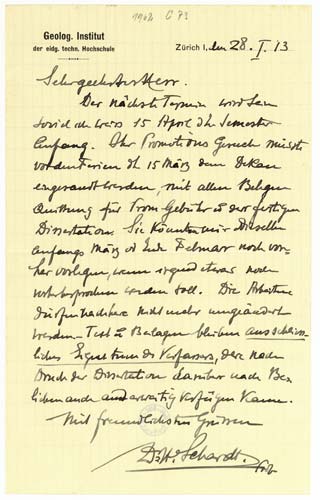 1962 C 73
Geolog. Institut
der eidg. techn. Hochschule
Zürich I, den 28. I. 13
Sehr geehrter Herr.
Der nächste Termin wird sein
soviel ich weiss 15 April d h Semester
Anfang. Ihr Promotions Gesuch müsste
vor dem Ferien d h 15 März dem Dekan
eingesandt werden, mit allen Beilagen
Quittung für Prom Gebühr & der fertigen
Dissertation. Sie könnten mir dieselbe
anfangs März od Ende Februar noch vor-
her vorlegen, wenn irgend etwas noch
werden soll. Die Arbeiten
dürfen nachher nicht mehr umgeändert
werden. Text & Beilagen bleiben ausschliess-
liches Eigentum des Verfassers, der nach
Druck der Dissertation darüber nach Be-
lieben auch anderwärtig verfügen kann.
Mit freundlichsten Grüssen
Dr H. Schardt.